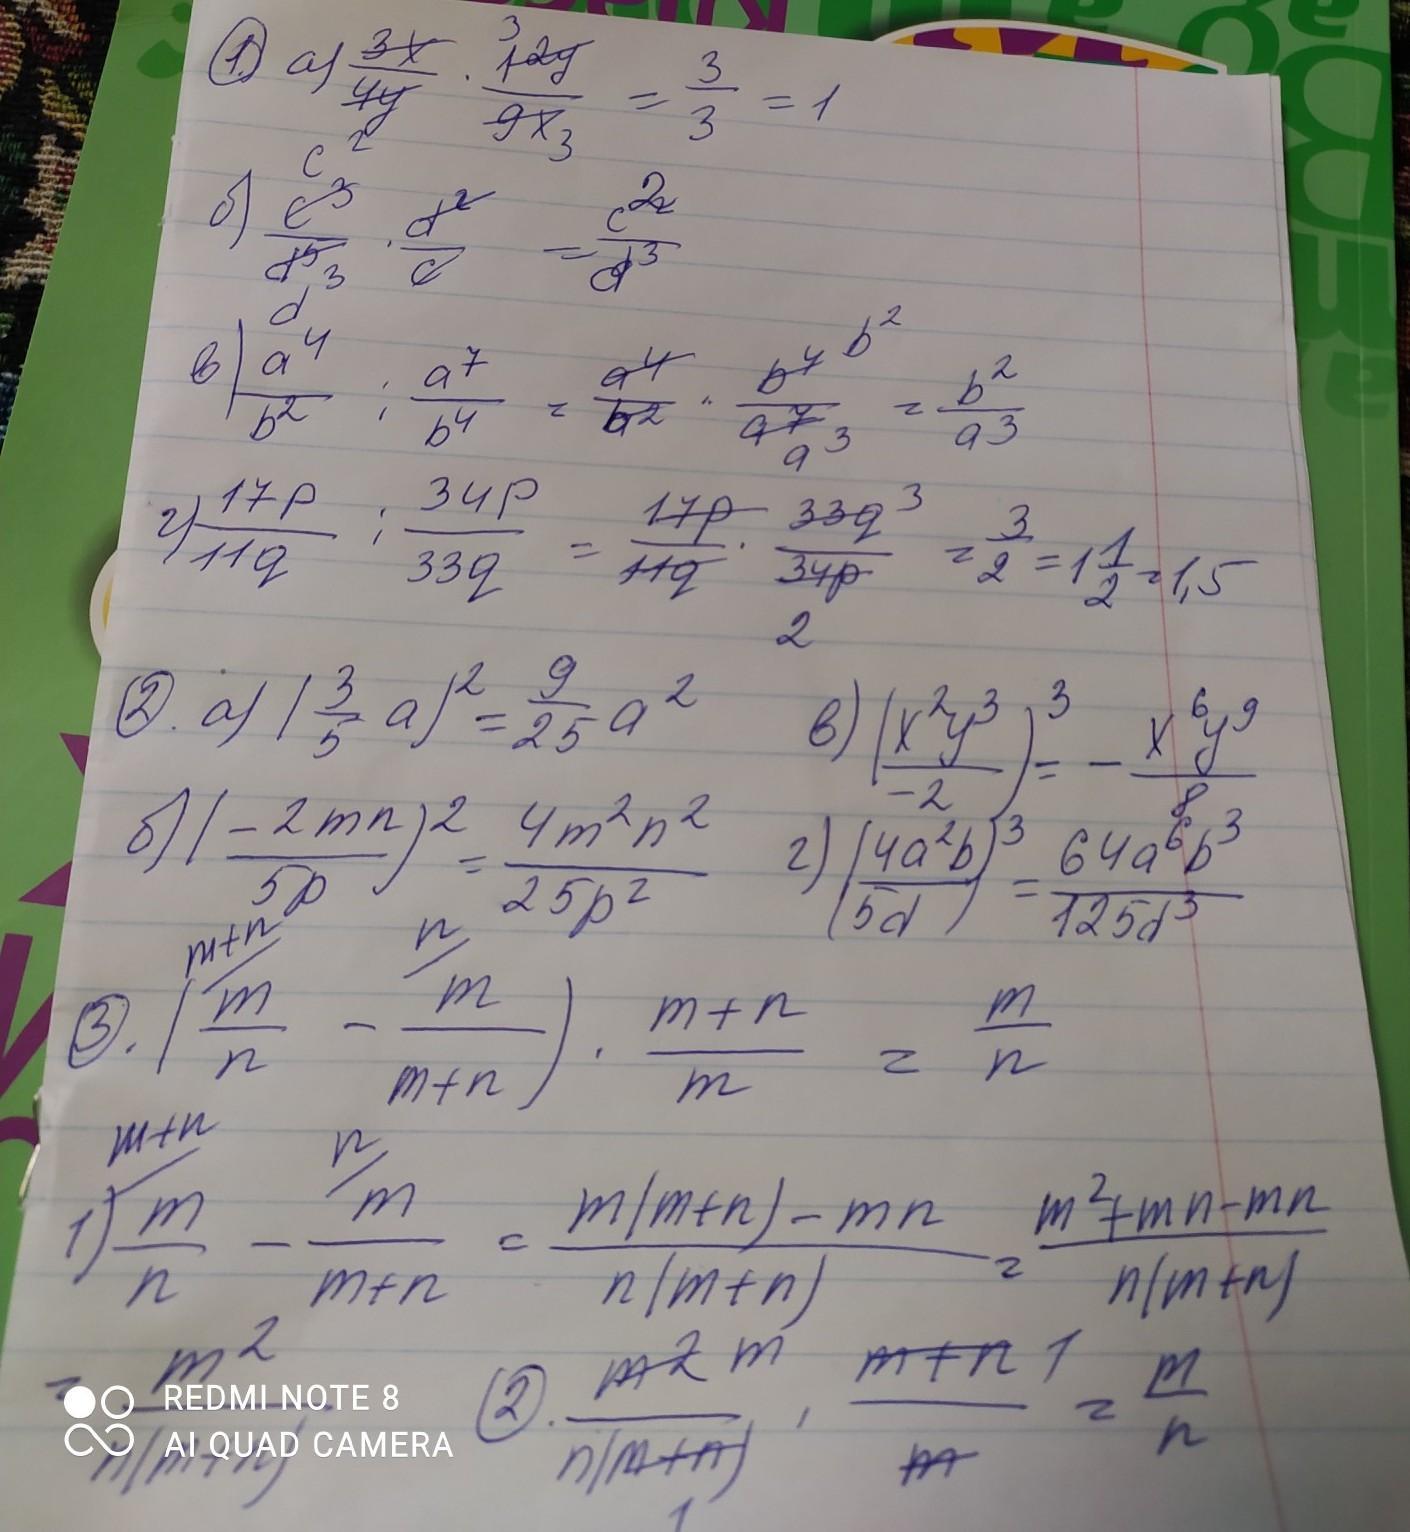 1. а) 3x/4y · 12y/9x = 3/3 = 1
3
3
c²
б) c³/d⁵ · d²/c = c²/d³
d³
в) a⁴/b² : a⁷/b⁴ = a⁴/b² · b⁴/a⁷ = b²/a³
b²
a³
г) 17p/11q : 34p/33q = 17p/11q · 33q/34p = 3/2 = 1 1/2 = 1,5
3
2
2. а) (3/5 a)² = 9/25 a² в) (x²y³/-2)³ = - x⁶y⁹/8
б) (-2mn/5p)² = 4m²n²/25p² г) (4a²b/5d)³ = 64a⁶b³/125d³
m+n n
3. (m/n - m/m+n) · m+n/m = m/n
m+n n
1) m/n - m/m+n = m(m+n) - mn/n(m+n) = m²+mn-mn/n(m+n)
= m²/n(m+n) 2. m²/n(m+n) · m+n/m = m/n
m 1
1
REDMI NOTE 8
AI QUAD CAMERA